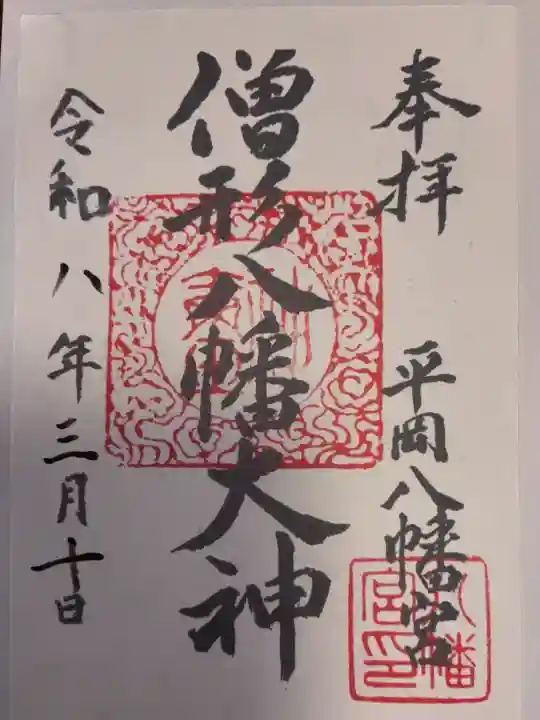 奉拝
平岡八幡宮
僧形八幡大神
令和八年三月十日
八幡宮印